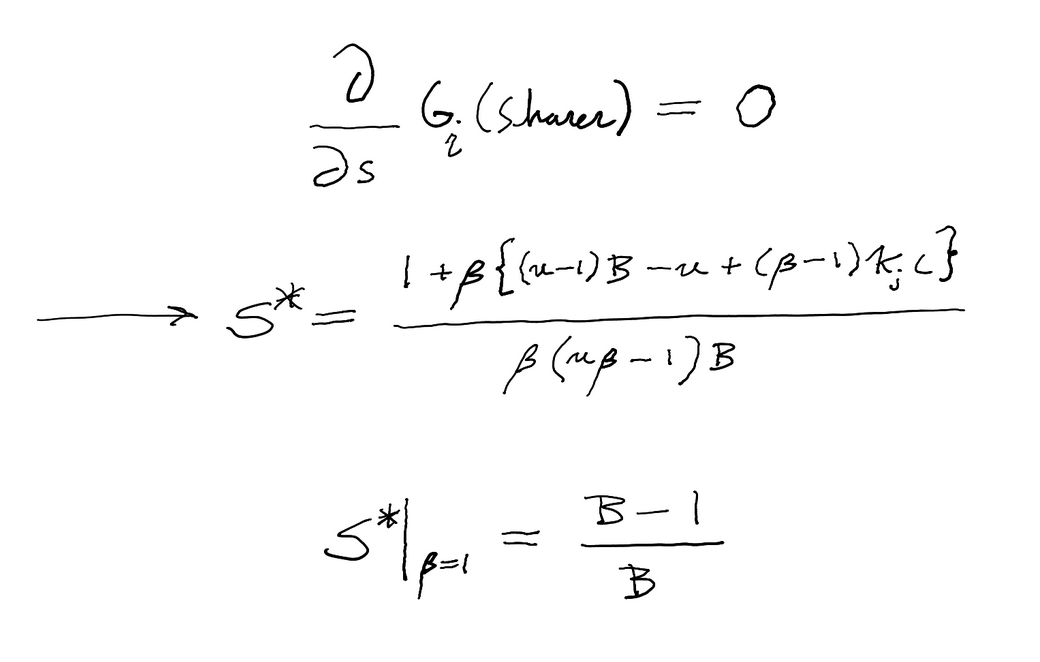 ∂/∂s G_i(sharer) = 0
⟶ s* = (1 + β{(n−1)B − n + (β−1)k_j c}) / (β(nβ−1)B)
s*|_{β=1} = (B−1)/B